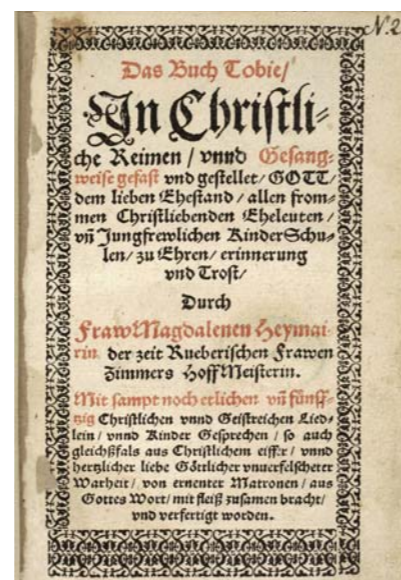 N. 2
Das Buch Tobie/
In Christli⸗
che Reimen / vnnd Gesang⸗
weise gefast vnd gestellet / GOTT /
dem lieben Ehestand / allen from⸗
men Christliebenden Eheleuten /
vn̄ Jungfrewlichen KinderSchu⸗
len / zu Ehren / erinnerung
vnd Trost /
Durch
Fraw Magdalenen Heymai⸗
rin der zeit Rueberischen Frawen
Zimmers HoffMeisterin.
Mit sampt noch etlichen vn̄ fünff⸗
tzig Christlichen vnnd Geistreichen Lied⸗
lein / vnnd Kinder Gesprechen / so auch
gleichßfals aus Christlichem eiffer / vnnd
hertzlicher liebe Göttlicher vnuerfelscheter
Warheit / von ernenter Matronen / aus
Gottes Wort / mit fleiß zusamen bracht /
vnd verfertigt worden.